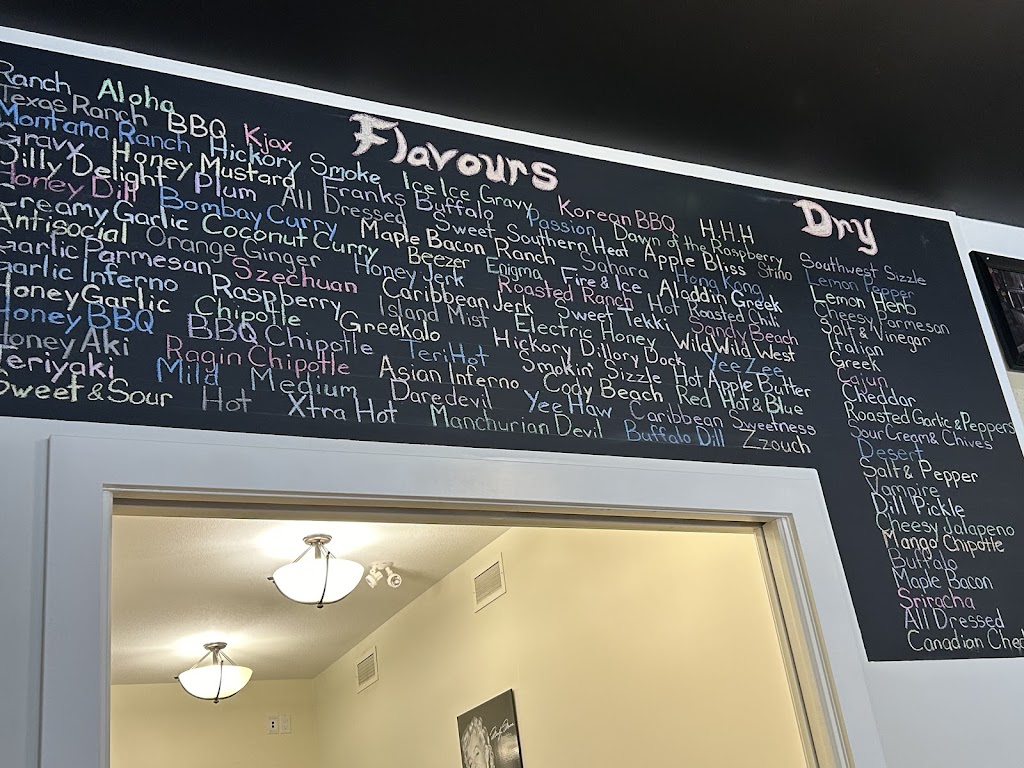 Flavours
Ranch Alpha
Texas Ranch BBQ Kjax
Montana Ranch Hickory Smoke Ice Ice Gravy Korean BBQ H.H.H
Gravy Honey Mustard Franks Buffalo Passion Dawn of the Raspberry
Dilly Delight Plum All Dressed Sweet Southern Heat Apple Bliss Stino
Honey Dill Bombay Curry Maple Bacon Ranch Sahara Hong Kong
Creamy Garlic Coconut Curry Beezer Enigma Fire & Ice Aladdin Greek
Antisocial Orange Ginger Honey Jerk Roasted Ranch Hot Roasted Chili
Garlic Parmesan Szechuan Caribbean Jerk Sweet Tekki Sandy Beach
Garlic Inferno Raspberry Island Mist Electric Honey Wild Wild West
Honey Garlic Chipotle Greekalo Hickory Dillory Dock Yee Zee
Honey BBQ BBQ Chipotle TeriHot Smokin' Sizzle Hot Apple Butter
Honey Aki Ragin Chipotle Asian Inferno Cody Beach Red Hot & Blue
Teriyaki Mild Medium Daredevil Yee Haw Caribbean Sweetness
Sweet & Sour Hot Xtra Hot Manchurian Devil Buffalo Dill Zzouch
Dry
Southwest Sizzle
Lemon Pepper
Lemon Herb
Cheesy Parmesan
Salt & Vinegar
Italian
Greek
Cajun
Cheddar
Roasted Garlic & Peppers
Sour Cream & Chives
Desert
Salt & Pepper
Vampire
Dill Pickle
Cheesy Jalapeno
Mango Chipotle
Buffalo
Maple Bacon
Sriracha
All Dressed
Canadian Ched